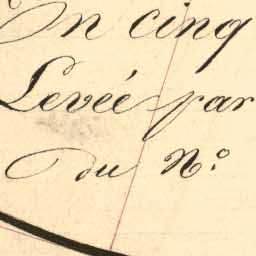 En cinq
Levée par
du N.o